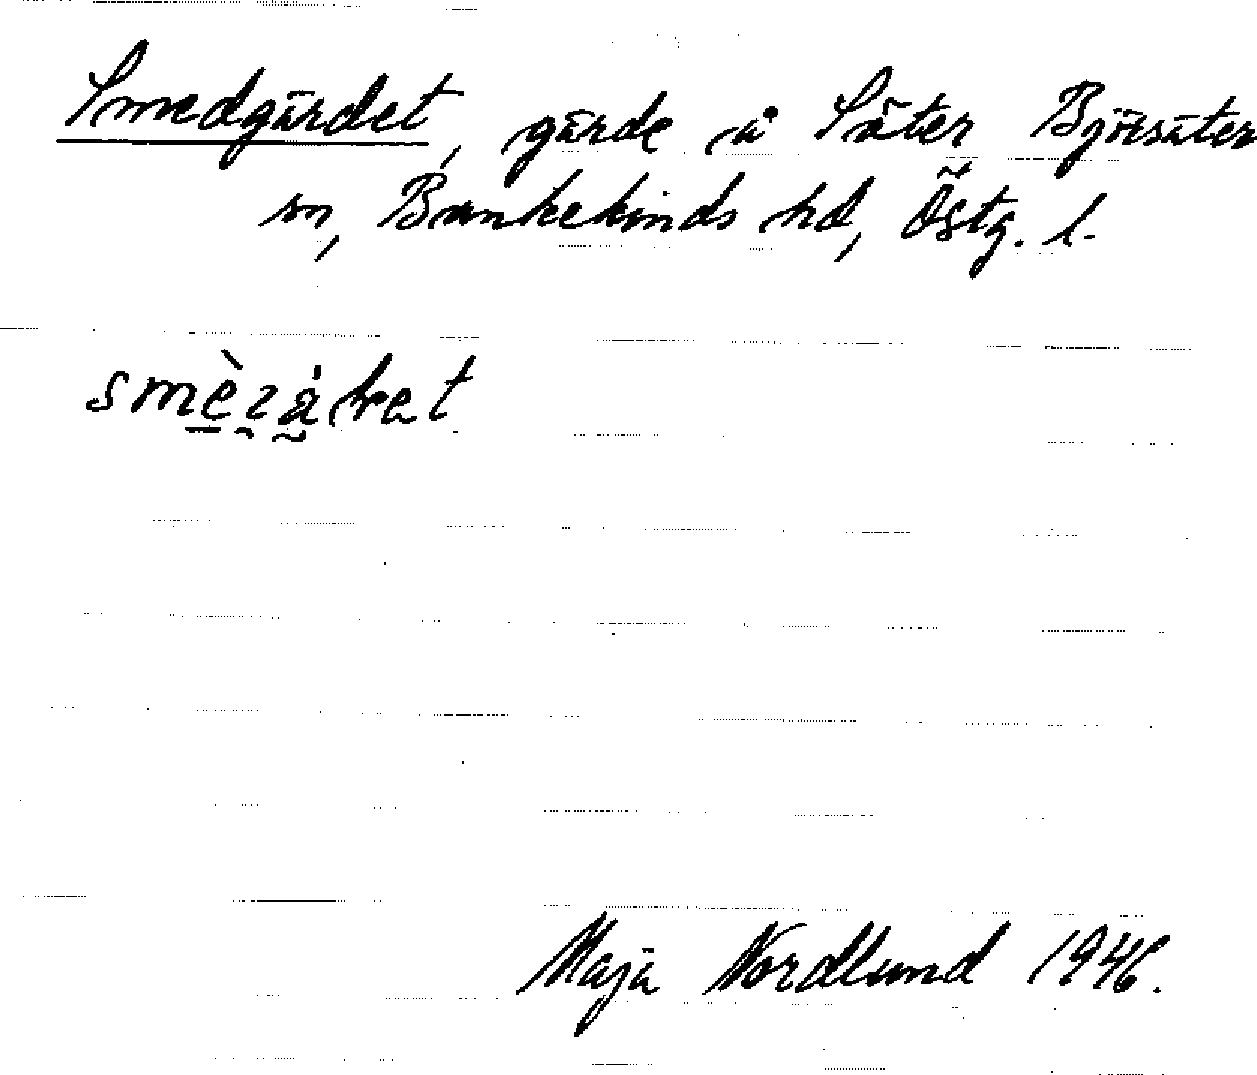 Smedgärdet, gärde å Säter Björsäter
sn, Bankekinds hd, Östg. l.
Maja Nordlund 1946.